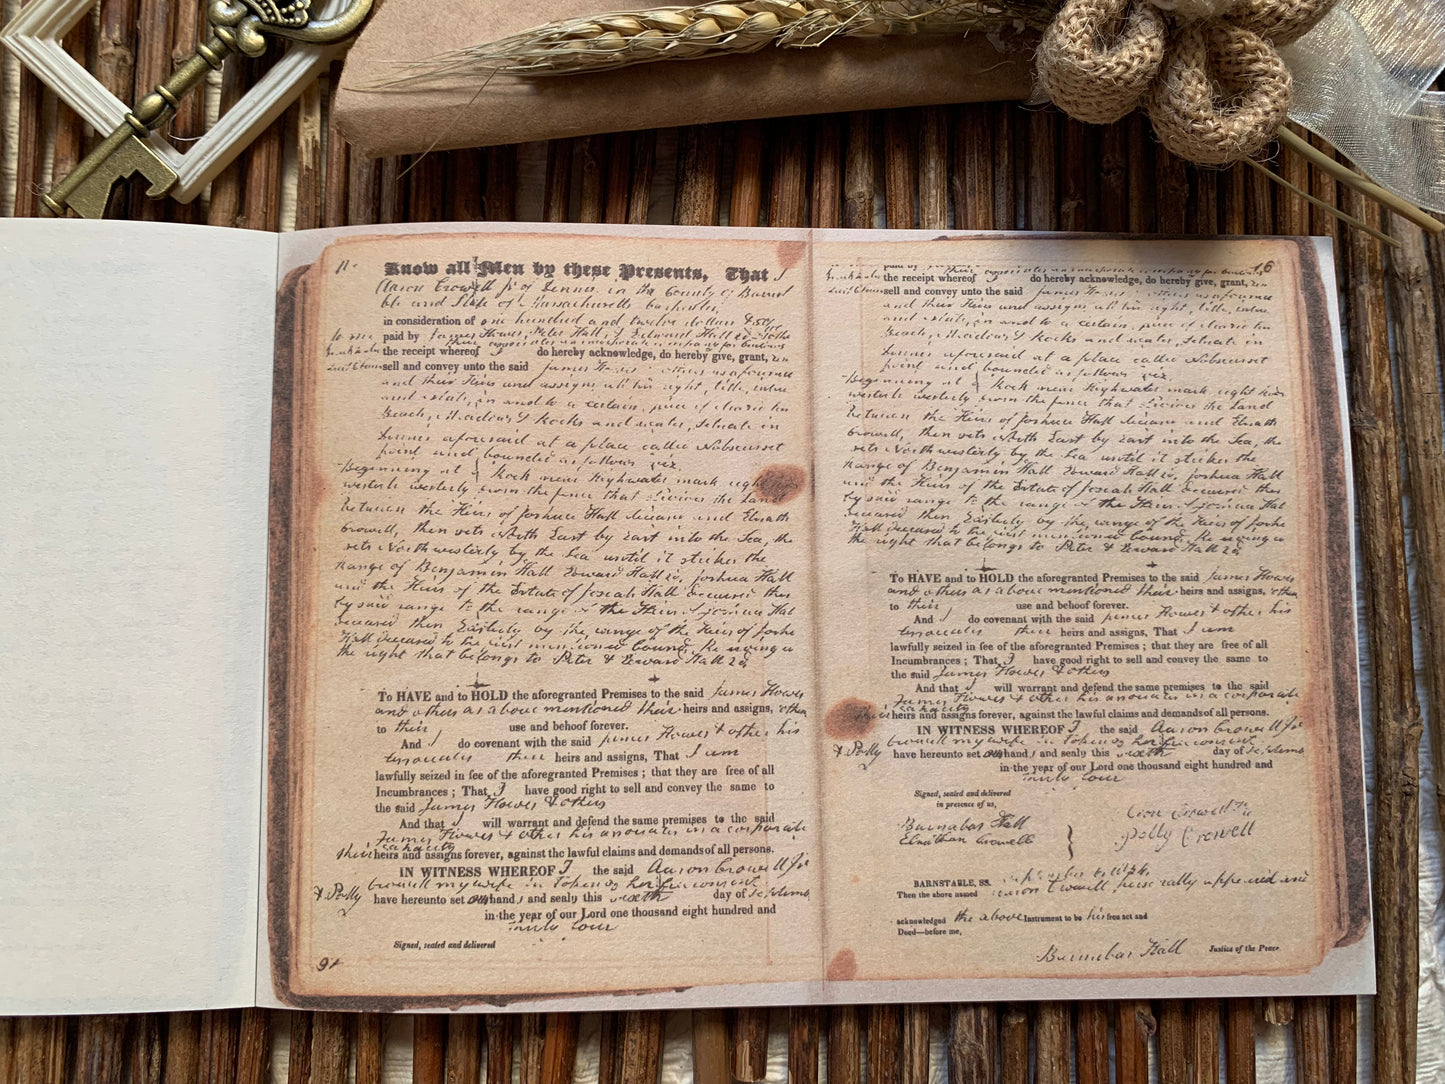 11.
Know all Men by these Presents, That I
Aaron Crowell Jr of Dennis in the County of Barnst
ble and State of Massachusetts
in consideration of one hundred and twelve dollars & 50/
paid by James Howes, Peter Hall, & Edward Hall 2d
the receipt whereof I do hereby acknowledge, do hereby give, grant,
sell and convey unto the said James Howes others as aforesaid
and their Heirs and assigns all the right, title,
in and to a certain piece of
Beach, Meadow & Rocks and water, situate in
Dennis aforesaid at a place called Nobscusset
point and bounded as follows viz.
Beginning at Rock near Highwater mark
westerly from the fence that divides the land
between the Heirs of Joshua Hall deceased and
Crowell, then sets North East by East into the Sea, the
sets Northwesterly by the Sea until it strikes the
range of Benjamin Hall Edward Hall 2d, Joshua Hall
and the Heirs of the Estate of Josiah Hall deceased then
by said range to the range of the Heirs of Joshua Hal
deceased then Easterly by the range of the Heirs of
Hall deceased to the first mentioned bound. Reserving
the right that belongs to Peter & Edward Hall 2d
To HAVE and to HOLD the aforegranted Premises to the said James Howes
and others as above mentioned their heirs and assigns,
to their use and behoof forever.
And I do covenant with the said James Howes & others his
associates their heirs and assigns, That I am
lawfully seized in fee of the aforegranted Premises ; that they are free of all
Incumbrances ; That I have good right to sell and convey the same to
the said James Howes & others
And that I will warrant and defend the same premises to the said
James Howes & others his associates in a corporate
capacity
their heirs and assigns forever, against the lawful claims and demands of all persons.
IN WITNESS WHEREOF I the said Aaron Crowell Jr
& Polly Crowell my wife in token of her consent
have hereunto set our hands and seals this sixth day of Septemb
in the year of our Lord one thousand eight hundred and
thirty four
Signed, sealed and delivered
91
16
the receipt whereof I do hereby acknowledge, do hereby give, grant,
sell and convey unto the said James Howes others as aforesaid
and their Heirs and assigns all the right, title,
in and to a certain piece of
Beach, Meadow & Rocks and water, situate in
Dennis aforesaid at a place called Nobscusset
point and bounded as follows viz.
Beginning at Rock near Highwater mark eight
westerly from the fence that divides the land
between the Heirs of Joshua Hall deceased and
Crowell, then sets North East by East into the Sea, the
sets Northwesterly by the Sea until it strikes the
range of Benjamin Hall Edward Hall 2d, Joshua Hall
and the Heirs of the Estate of Josiah Hall deceased then
by said range to the range of the Heirs of Joshua Hal
deceased then Easterly by the range of the Heirs of
Hall deceased to the first mentioned bound. Reserving
the right that belongs to Peter & Edward Hall 2d
To HAVE and to HOLD the aforegranted Premises to the said James Howes
and others as above mentioned their heirs and assigns,
to their use and behoof forever.
And I do covenant with the said James Howes & others his
associates their heirs and assigns, That I am
lawfully seized in fee of the aforegranted Premises ; that they are free of all
Incumbrances ; That I have good right to sell and convey the same to
the said James Howes & others
And that I will warrant and defend the same premises to the said
James Howes & others his associates in a corporate
capacity
their heirs and assigns forever, against the lawful claims and demands of all persons.
IN WITNESS WHEREOF I the said Aaron Crowell Jr
& Polly Crowell my wife in token of her consent
have hereunto set our hands and seals this sixth day of Septemb
in the year of our Lord one thousand eight hundred and
thirty four
Signed, sealed and delivered
in presence of us,
Barnabas Hall
Elnathan Crowell
Aaron Crowell Jr
Polly Crowell
BARNSTABLE, SS. September sixth
Then the above named Aaron Crowell personally appeared and
acknowledged the above Instrument to be his free act and
Deed—before me,
Barnabas Hall Justice of the Peace